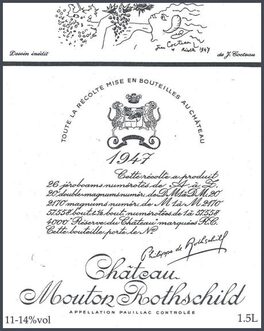 Jean Cocteau
Noël 1947
Dessin inédit
de J. Cocteau
TOUTE LA RÉCOLTE MISE EN BOUTEILLES AU CHÂTEAU
1947
Cette récolte a produit
26 jéroboams numérotés de A à Z.
20 double magnums numér. de D.M. 1 à D.M. 20
2170 magnums numér. de M. 1 à M. 2170
57558 bout. & ½ bout. numérotées de 1 à 57558
4000 "Réserve du Château" marquées R.C.
Cette bouteille porte le Nº
Philippe de Rothschild
Château
Mouton Rothschild
APPELLATION PAUILLAC CONTROLÉE
11-14%vol
1.5L